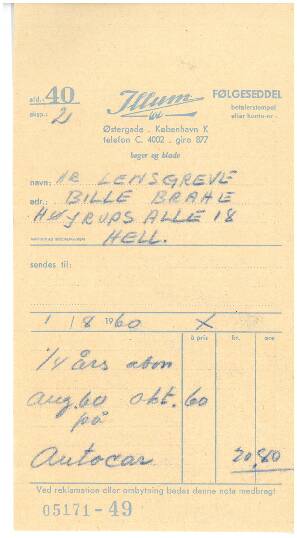 afd. 40
eksp. 2
Illum
FØLGESEDDEL
betalerstempel
eller konto-nr.
Østergade . København K
telefon C. 4002 . giro 877
bøger og blade
navn: Hr LENSGREVE
adr.: BILLE BRAHE
HØJRUPS ALLE 18
HELL.
sendes til:
1 / 8 1960 X
á pris kr. øre
1/4 års abon
aug. 60 okt. 60
på
Autocar 20,80
Ved reklamation eller ombytning bedes denne nota medbragt
05171-49